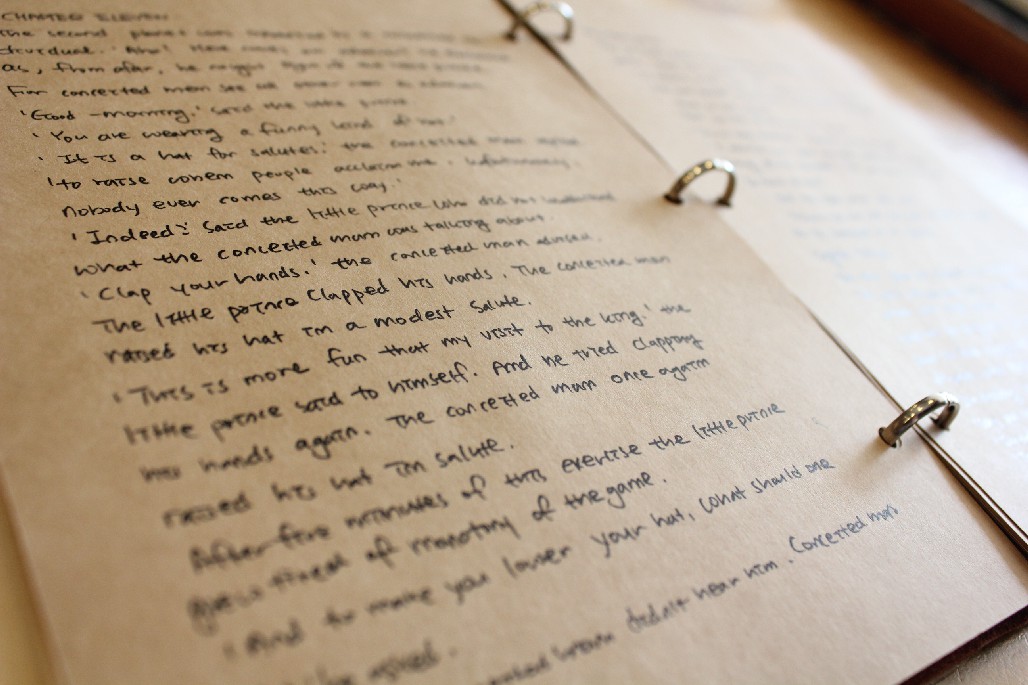 CHAPTER ELEVEN
the second planet was
as, from afar, he
For conceited men see all
'Good -morning.' said the little prince
'You are wearing a funny kind of hat.'
'It is a hat for salutes: the conceited man
'to raise when people acclaim me. Unfortunately,
Nobody ever comes this way.'
'Indeed?' Said the little prince who did not understand
what the conceited man was talking about.
'Clap your hands.' the conceited man advised.
The little prince clapped his hands. The conceited man
raised his hat in a modest salute.
'This is more fun that my visit to the king.' the
little prince said to himself. And he tried clapping
his hands again. The conceited man once again
raised his hat in salute.
After five minutes of this exercise the little prince
grew tired of monotony of the game.
'And to make you lower your hat, what should one
he asked.
didn't hear him. Conceited men